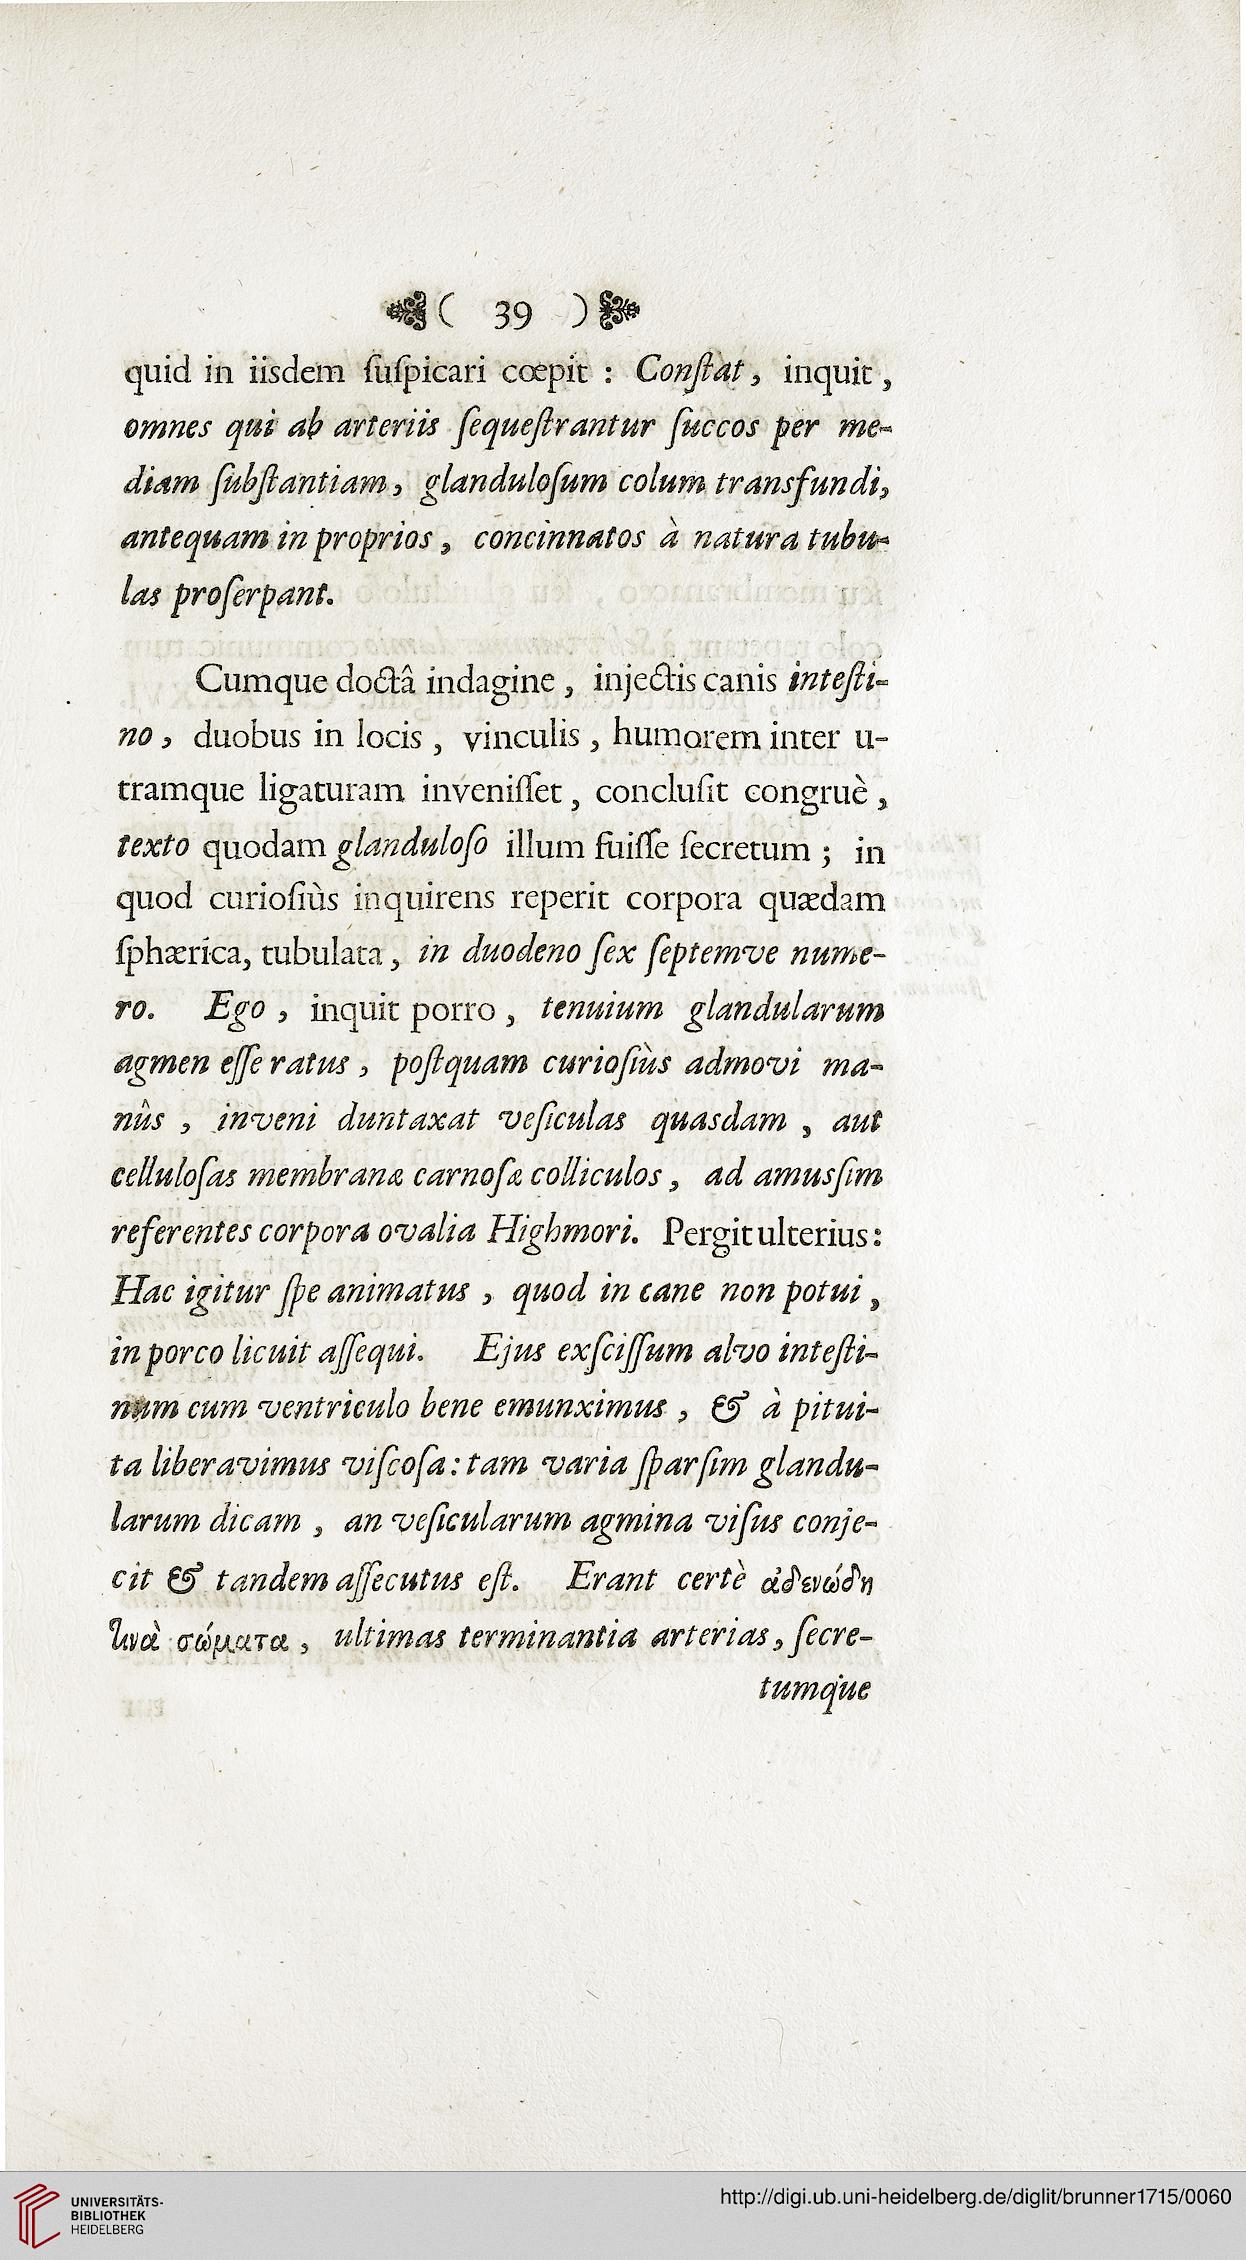 ( 39 )
quid in iisdem ſuſpicari cœpit : Conſtat, inquit,
omnes qui ab arteriis ſequeſtrantur ſuccos per me-
diam ſubſtantiam, glanduloſum colum transfundi,
antequam in proprios, concinnatos à natura tubu-
las proſerpant.
Cumque doctâ indagine, injectis canis inteſti-
no, duobus in locis, vinculis, humorem inter u-
tramque ligaturam inveniſſet, concluſit congruè,
texto quodam glanduloſo illum fuiſſe ſecretum ; in
quod curioſiùs inquirens reperit corpora quædam
ſphærica, tubulata, in duodeno ſex ſeptemve nume-
ro. Ego, inquit porro, tenuium glandularum
agmen eſſe ratus, poſtquam curioſiùs admovi ma-
nûs, inveni duntaxat veſiculas quasdam, aut
celluloſas membranæ carnoſæ colliculos, ad amusſim
referentes corpora ovalia Highmori. Pergit ulterius:
Hac igitur ſpe animatus, quod in cane non potui,
in porco licuit aſſequi. Ejus exſciſſum alvo inteſti-
num cum ventriculo bene emunximus, & à pitui-
ta liberavimus viſcoſa: tam varia ſparſim glandu-
larum dicam, an veſicularum agmina viſus conje-
cit & tandem aſſecutus eſt. Erant certè ἀδενώδη
τινὰ σώματα, ultimas terminantia arterias, ſecre-
tumque
UNIVERSITÄTS-
BIBLIOTHEK
HEIDELBERG
http://digi.ub.uni-heidelberg.de/diglit/brunner1715/0060